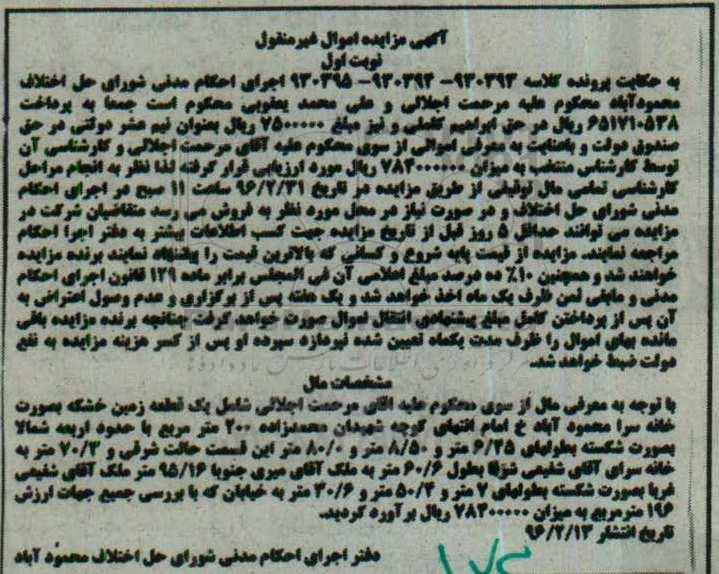 آگهی مزایده اموال غیرمنقول
نوبت اول
به حکایت پرونده کلاسه ۹۳۰۳۹۳- ۹۳۰۳۹۴- ۹۳۰۳۹۵ اجرای احکام مدنی شورای حل اختلاف
محمودآباد محکوم علیه مرحمت اجلالی و علی محمد یعقوبی محکوم است جمعا به پرداخت
۶۵۱۷۱۰۵۳۸ ریال در حق ابراهیم کفیلی و نیز مبلغ ۷۵۰۰۰۰۰ ریال بعنوان نیم عشر دولتی در حق
صندوق دولت و باعنایت به معرفی اموالی از سوی محکوم علیه آقای مرحمت اجلالی و کارشناسی آن
توسط کارشناس منتخب به میزان ۷۸۴۰۰۰۰۰۰ ریال مورد ارزیابی قرار گرفته لذا نظر به انجام مراحل
کارشناسی تمامی مال توقیفی از طریق مزایده در تاریخ ۹۶/۲/۳۱ ساعت ۱۱ صبح در اجرای احکام
مدنی شورای حل اختلاف و در صورت نیاز در محل مورد نظر به فروش می رسد متقاضیان شرکت در
مزایده می توانند حداقل ۵ روز قبل از تاریخ مزایده جهت کسب اطلاعات بیشتر به دفتر اجرا احکام
مراجعه نمایند. مزایده از قیمت پایه شروع و کسانی که بالاترین قیمت را پیشنهاد نمایند برنده مزایده
خواهند شد و همچنین ۱۰٪ ده درصد مبلغ اعلامی آن فی المجلس برابر ماده ۱۲۹ قانون اجرای احکام
مدنی و مابقی ثمن ظرف یک ماه اخذ خواهد شد و یک هفته پس از برگزاری و عدم وصول اعتراض به
آن پس از پرداختن کامل مبلغ پیشنهادی انتقال اموال صورت خواهد گرفت چنانچه برنده مزایده باقی
مانده بهای اموال را ظرف مدت یکماه تعیین شده نپردازد سپرده او پس از کسر هزینه مزایده به نفع
دولت ضبط خواهد شد.
مشخصات مال
با توجه به معرفی مال از سوی محکوم علیه اقای مرحمت اجلالی شامل یک قطعه زمین خشکه بصورت
خانه سرا محمود آباد خ امام انتهای کوچه شهیدان محمدزاده ۲۰۰ متر مربع با حدود اربعه شمالا
بصورت شکسته بطولهای ۶/۲۵ متر و ۸/۵۰ متر و ۸۰/۰ متر این قسمت حالت شرقی و ۷۰/۲ متر به
خانه سرای آقای شفیعی شرقا بطول ۶۰/۶ متر به ملک آقای میری جنوبا ۹۵/۱۶ متر ملک آقای شفیعی
غربا بصورت شکسته بطولهای ۷ متر و ۵۰/۴ متر و ۳۰/۶ متر به خیابان که با بررسی جمیع جهات ارزش
۱۹۶ مترمربع به میزان ۷۸۴۰۰۰۰۰ ریال برآورد گردید.
تاریخ انتشار ۹۶/۲/۱۳
دفتر اجرای احکام مدنی شورای حل اختلاف محمود آباد